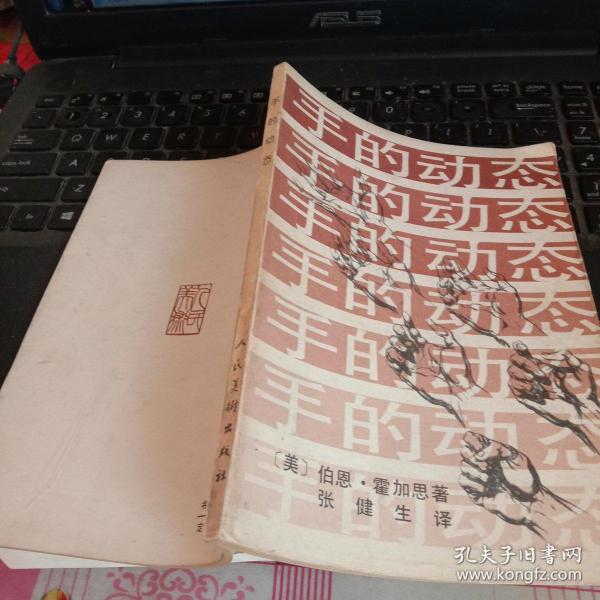 ASUS
手的动态
手的动态
手的动态
手的动态
手的动态
手的动态
手的动态
手的动态
〔美〕伯恩·霍加思著
张健生译
人民美術出版社
孔夫子旧書网
www.kongfz.com